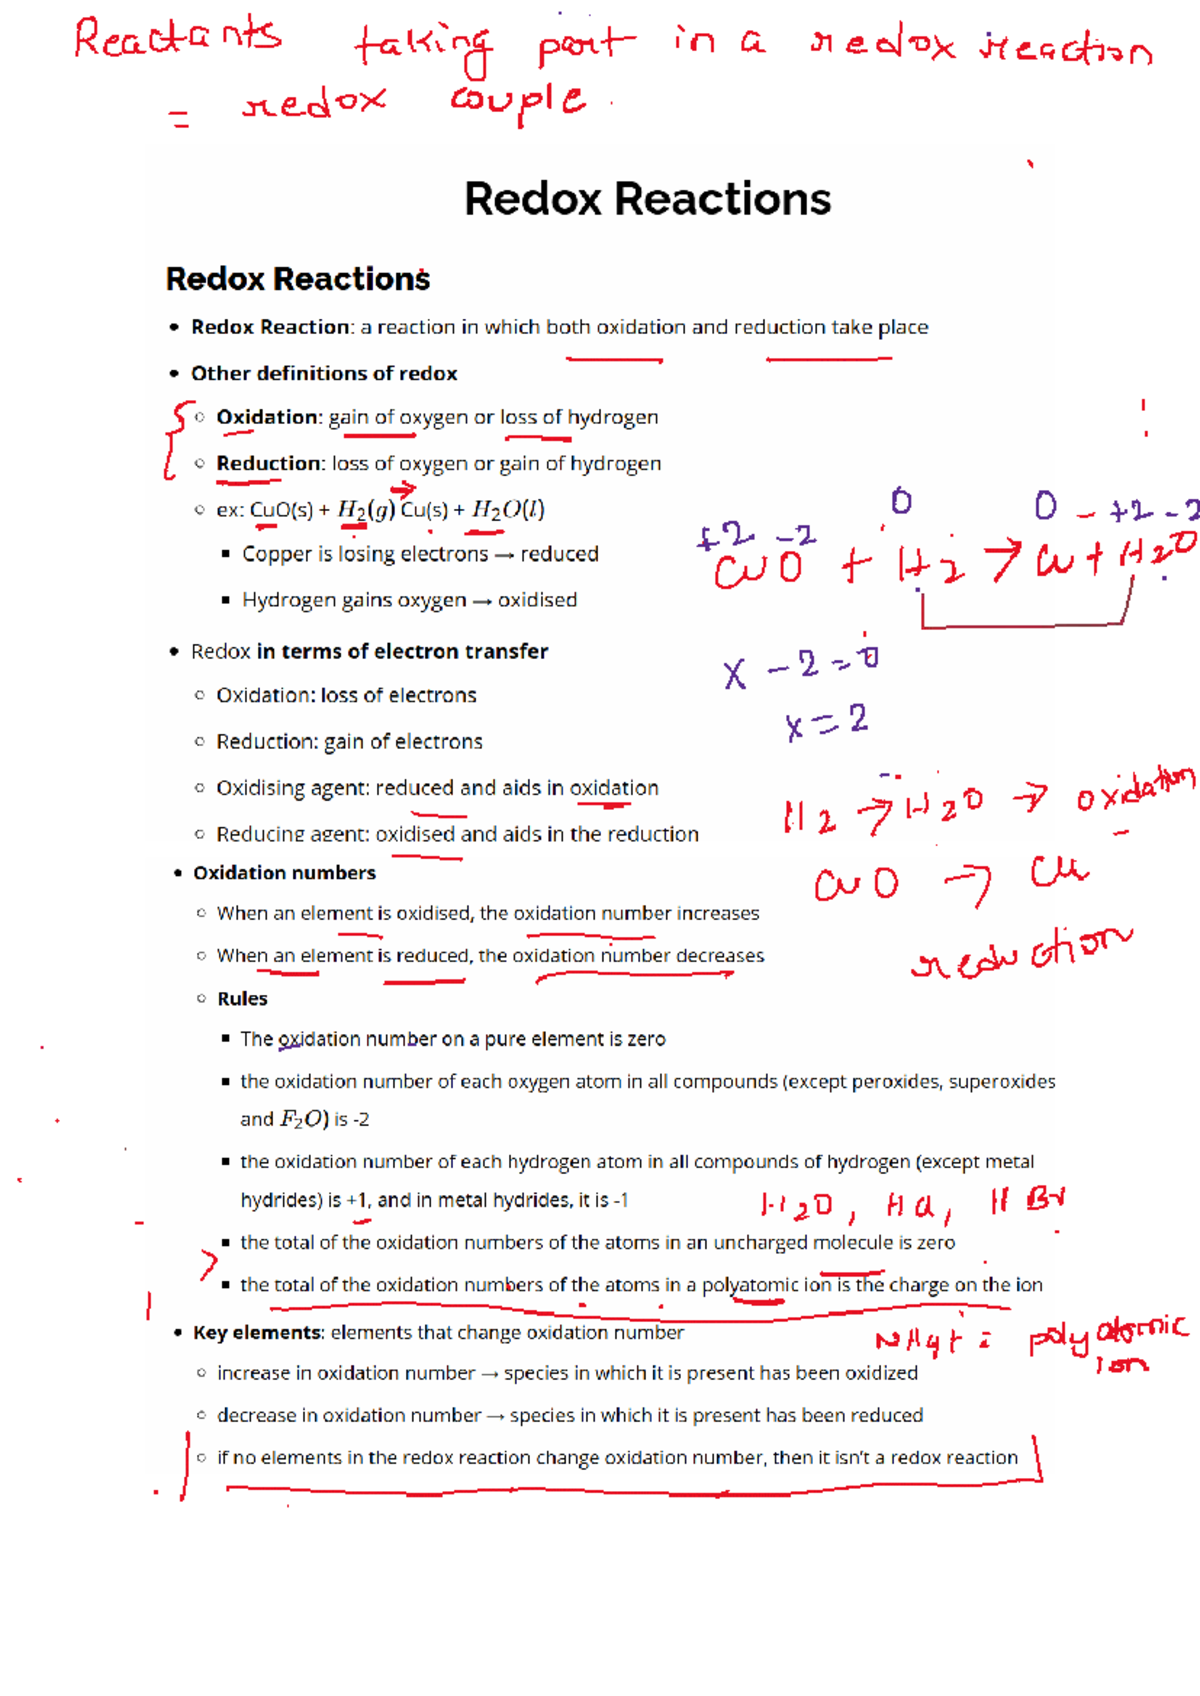 Reactants taking part in a redox reaction
= redox couple.
Redox Reactions
Redox Reactions
• Redox Reaction: a reaction in which both oxidation and reduction take place
• Other definitions of redox
○ Oxidation: gain of oxygen or loss of hydrogen
○ Reduction: loss of oxygen or gain of hydrogen
→
○ ex: CuO(s) + H₂(g) Cu(s) + H₂O(l)
0 0 - +2 -2
+2 -2
CuO + H₂ → Cu + H₂O
▪ Copper is losing electrons → reduced
▪ Hydrogen gains oxygen → oxidised
• Redox in terms of electron transfer
x - 2 = 0
○ Oxidation: loss of electrons
x = 2
○ Reduction: gain of electrons
○ Oxidising agent: reduced and aids in oxidation
H₂ → H₂O → oxidation
○ Reducing agent: oxidised and aids in the reduction
• Oxidation numbers
CuO → Cu
○ When an element is oxidised, the oxidation number increases
○ When an element is reduced, the oxidation number decreases
reduction
○ Rules
▪ The oxidation number on a pure element is zero
▪ the oxidation number of each oxygen atom in all compounds (except peroxides, superoxides
and F₂O) is -2
▪ the oxidation number of each hydrogen atom in all compounds of hydrogen (except metal
hydrides) is +1, and in metal hydrides, it is -1
H₂O, HCl, HBr
▪ the total of the oxidation numbers of the atoms in an uncharged molecule is zero
▪ the total of the oxidation numbers of the atoms in a polyatomic ion is the charge on the ion
• Key elements: elements that change oxidation number
NH₄+ = polyatomic
ion
○ increase in oxidation number → species in which it is present has been oxidized
○ decrease in oxidation number → species in which it is present has been reduced
○ if no elements in the redox reaction change oxidation number, then it isn't a redox reaction